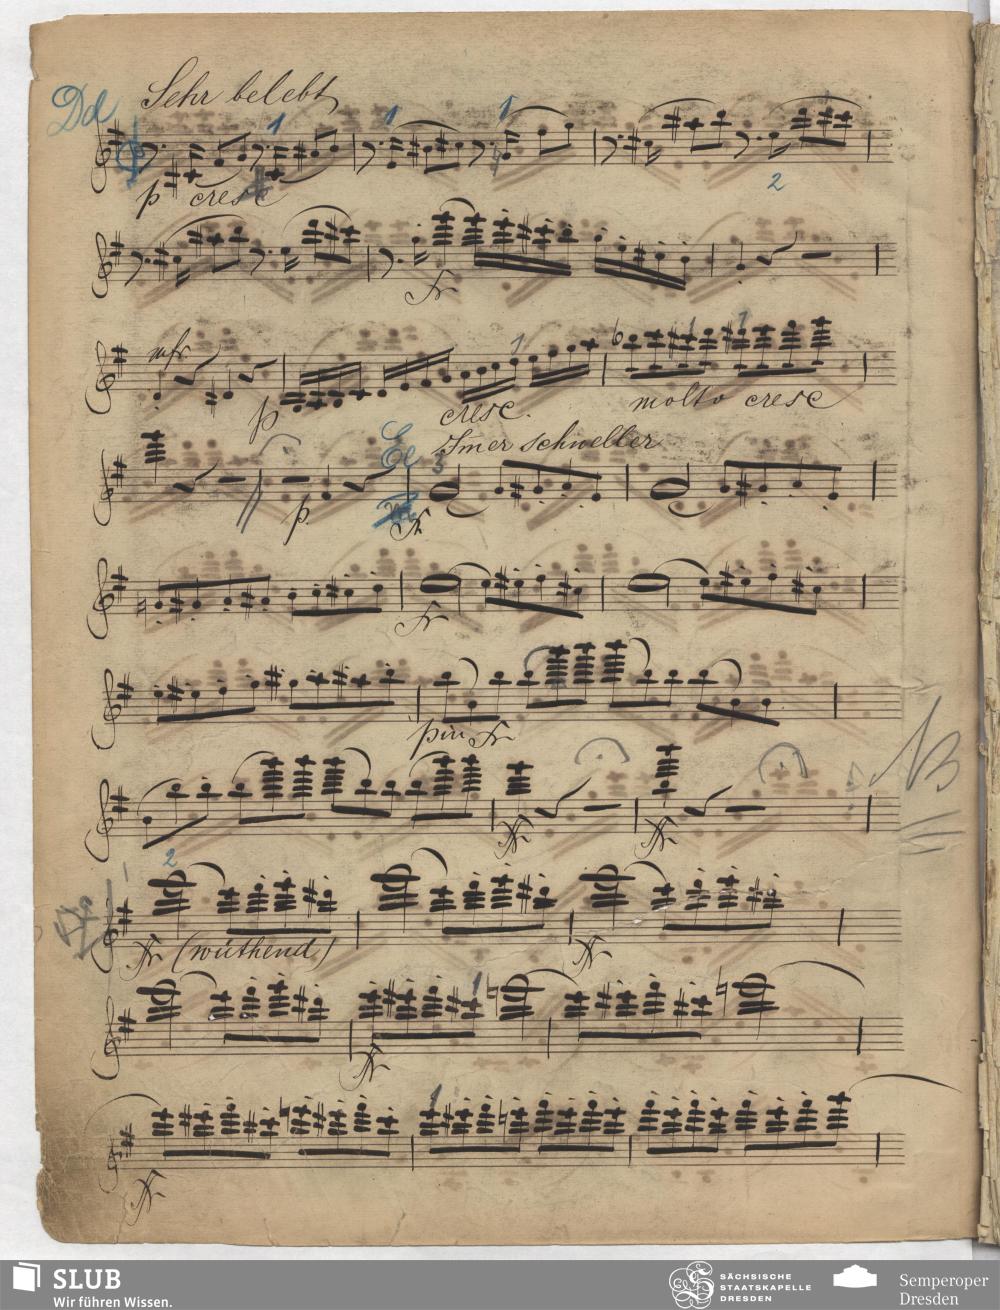 Dd
Sehr belebt
1
1
1
p cresc
2
fr
mfr
1
1
1
p
cresc.
molto cresc
Ee
Imer schneller
3
p
fr
fr
piu fr
NB
ffr
ffr
2
ffr (wüthend)
ffr
1
ffr
1
ffr
SLUB
Wir führen Wissen.
SÄCHSISCHE
STAATSKAPELLE
DRESDEN
Semperoper
Dresden